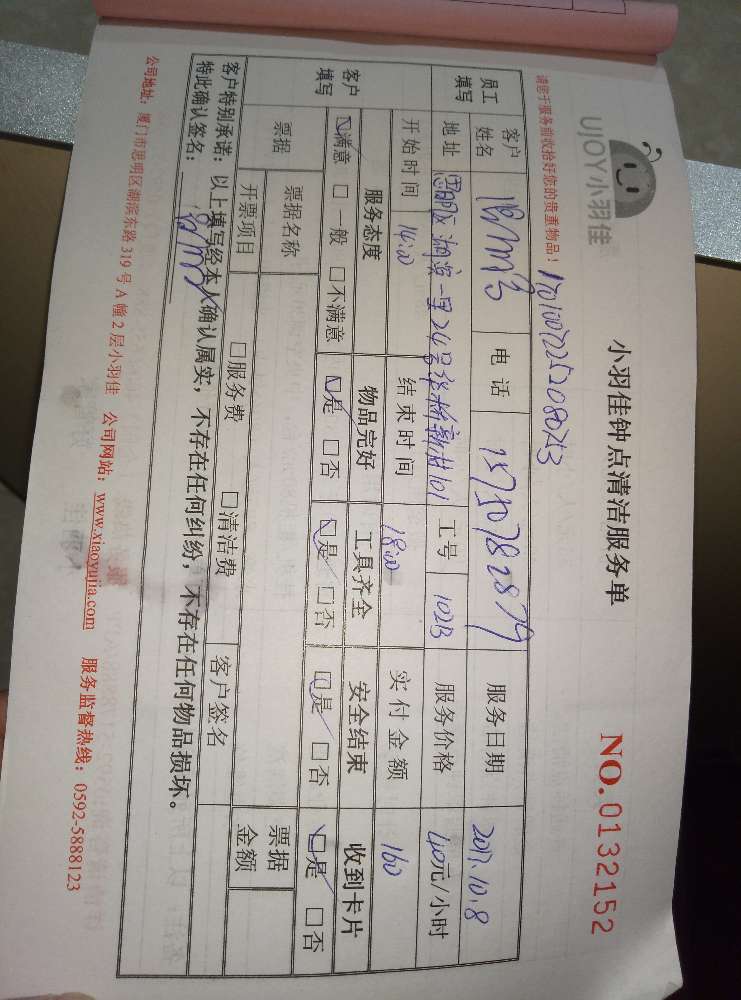 UJOY小羽佳
小羽佳钟点清洁服务单
NO.0132152
请您于服务前收拾好您的贵重物品！
员工填写 客户姓名 电话 服务日期 2017.10.8
地址 思明区湖滨一里24号 101 工号 1023 服务价格 40元/小时
开始时间 14:00 结束时间 18:00 实付金额 160
客户填写 服务态度 物品完好 工具齐全 安全结束 收到卡片
☑满意 □一般 □不满意 ☑是 □否 ☑是 □否 ☑是 □否 ☑是 □否
票据 票据名称 票据金额
开票项目 □服务费 □清洁费 客户签名
客户特别承诺：以上填写经本人确认属实，不存在任何纠纷，不存在任何物品损坏。
特此确认签名：
公司地址：厦门市思明区湖滨东路319号A幢2层小羽佳 公司网站：www.xiaoyujia.com 服务监督热线：0592-5888123